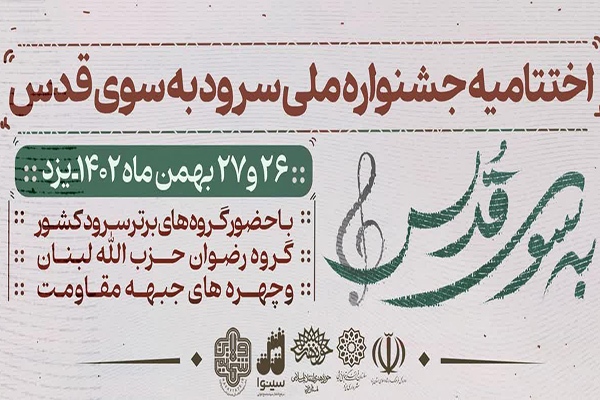 اختتامیه جشنواره ملی سرود به سوی قدس
به سوی قدس
۲۶ و ۲۷ بهمن ماه ۱۴۰۲-یزد
با حضور گروه‌های برتر سرود کشور
گروه رضوان حزب الله لبنان
و چهره های جبهه مقاومت
سینوا